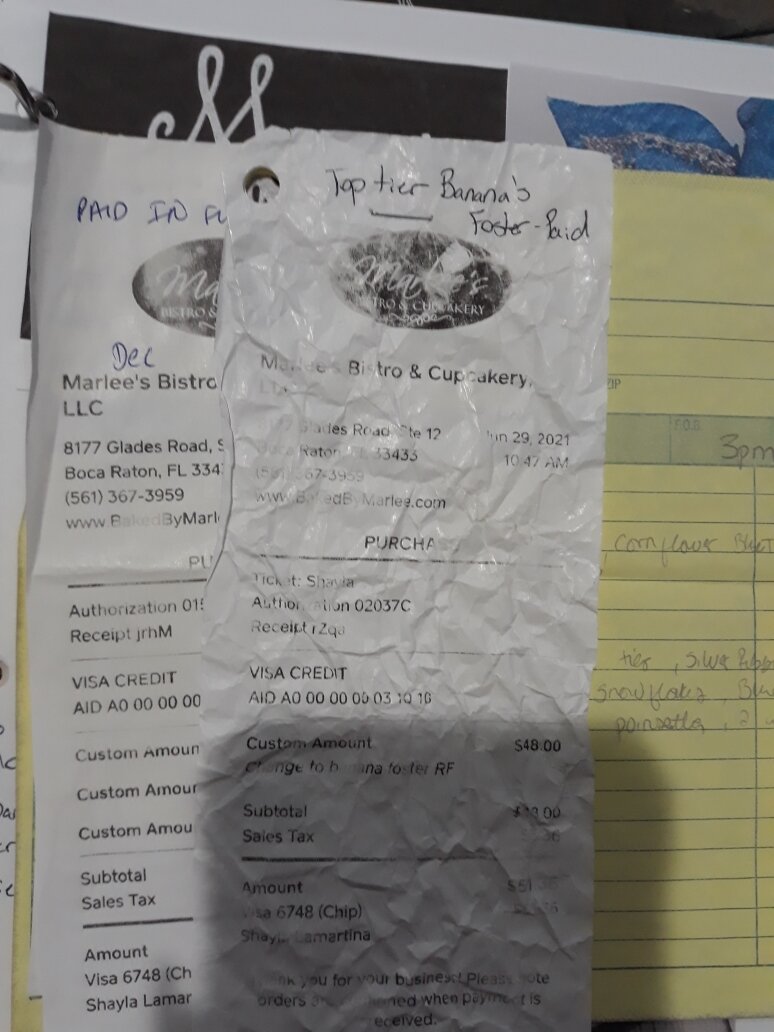 PAID IN
Dec
Marlee's Bistro
LLC
8177 Glades Road,
Boca Raton, FL 334
(561) 367-3959
www.BakedByMarl
PU
Authorization 015
Receipt jrhM
VISA CREDIT
AID A0 00 00 00
Custom Amoun
Custom Amour
Custom Amou
Subtotal
Sales Tax
Amount
Visa 6748 (Ch
Shayla Lamar
Top tier Banana's
Foster-Paid
Marlee's
BISTRO & CUPCAKERY
Marlee's Bistro & Cupcakery,
8177 Glades Road Ste 12
Jun 29, 2021
Boca Raton, FL 33433
10:47 AM
(561) 367-3959
www.BakedByMarlee.com
PURCHA
Ticket: Shayla
Authorization 02037C
Receipt rZqa
VISA CREDIT
AID A0 00 00 00 03 10 10
Custom Amount $48.00
Change to banana foster RF
Subtotal $48.00
Sales Tax
Amount
Visa 6748 (Chip)
Shayla Lamartina
Thank you for your business! Please note
orders are confirmed when payment is
received.
ZIP
F.O.B.
3pm
cornflower
tier, Silver
Snowflakes,